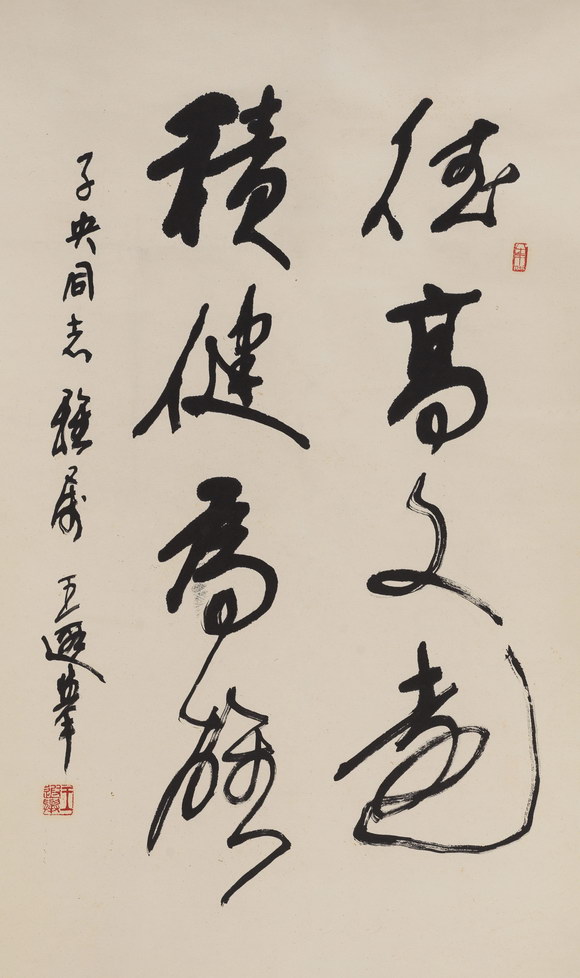 德高文遠
積健為雄
子央同志雅属 王遐舉